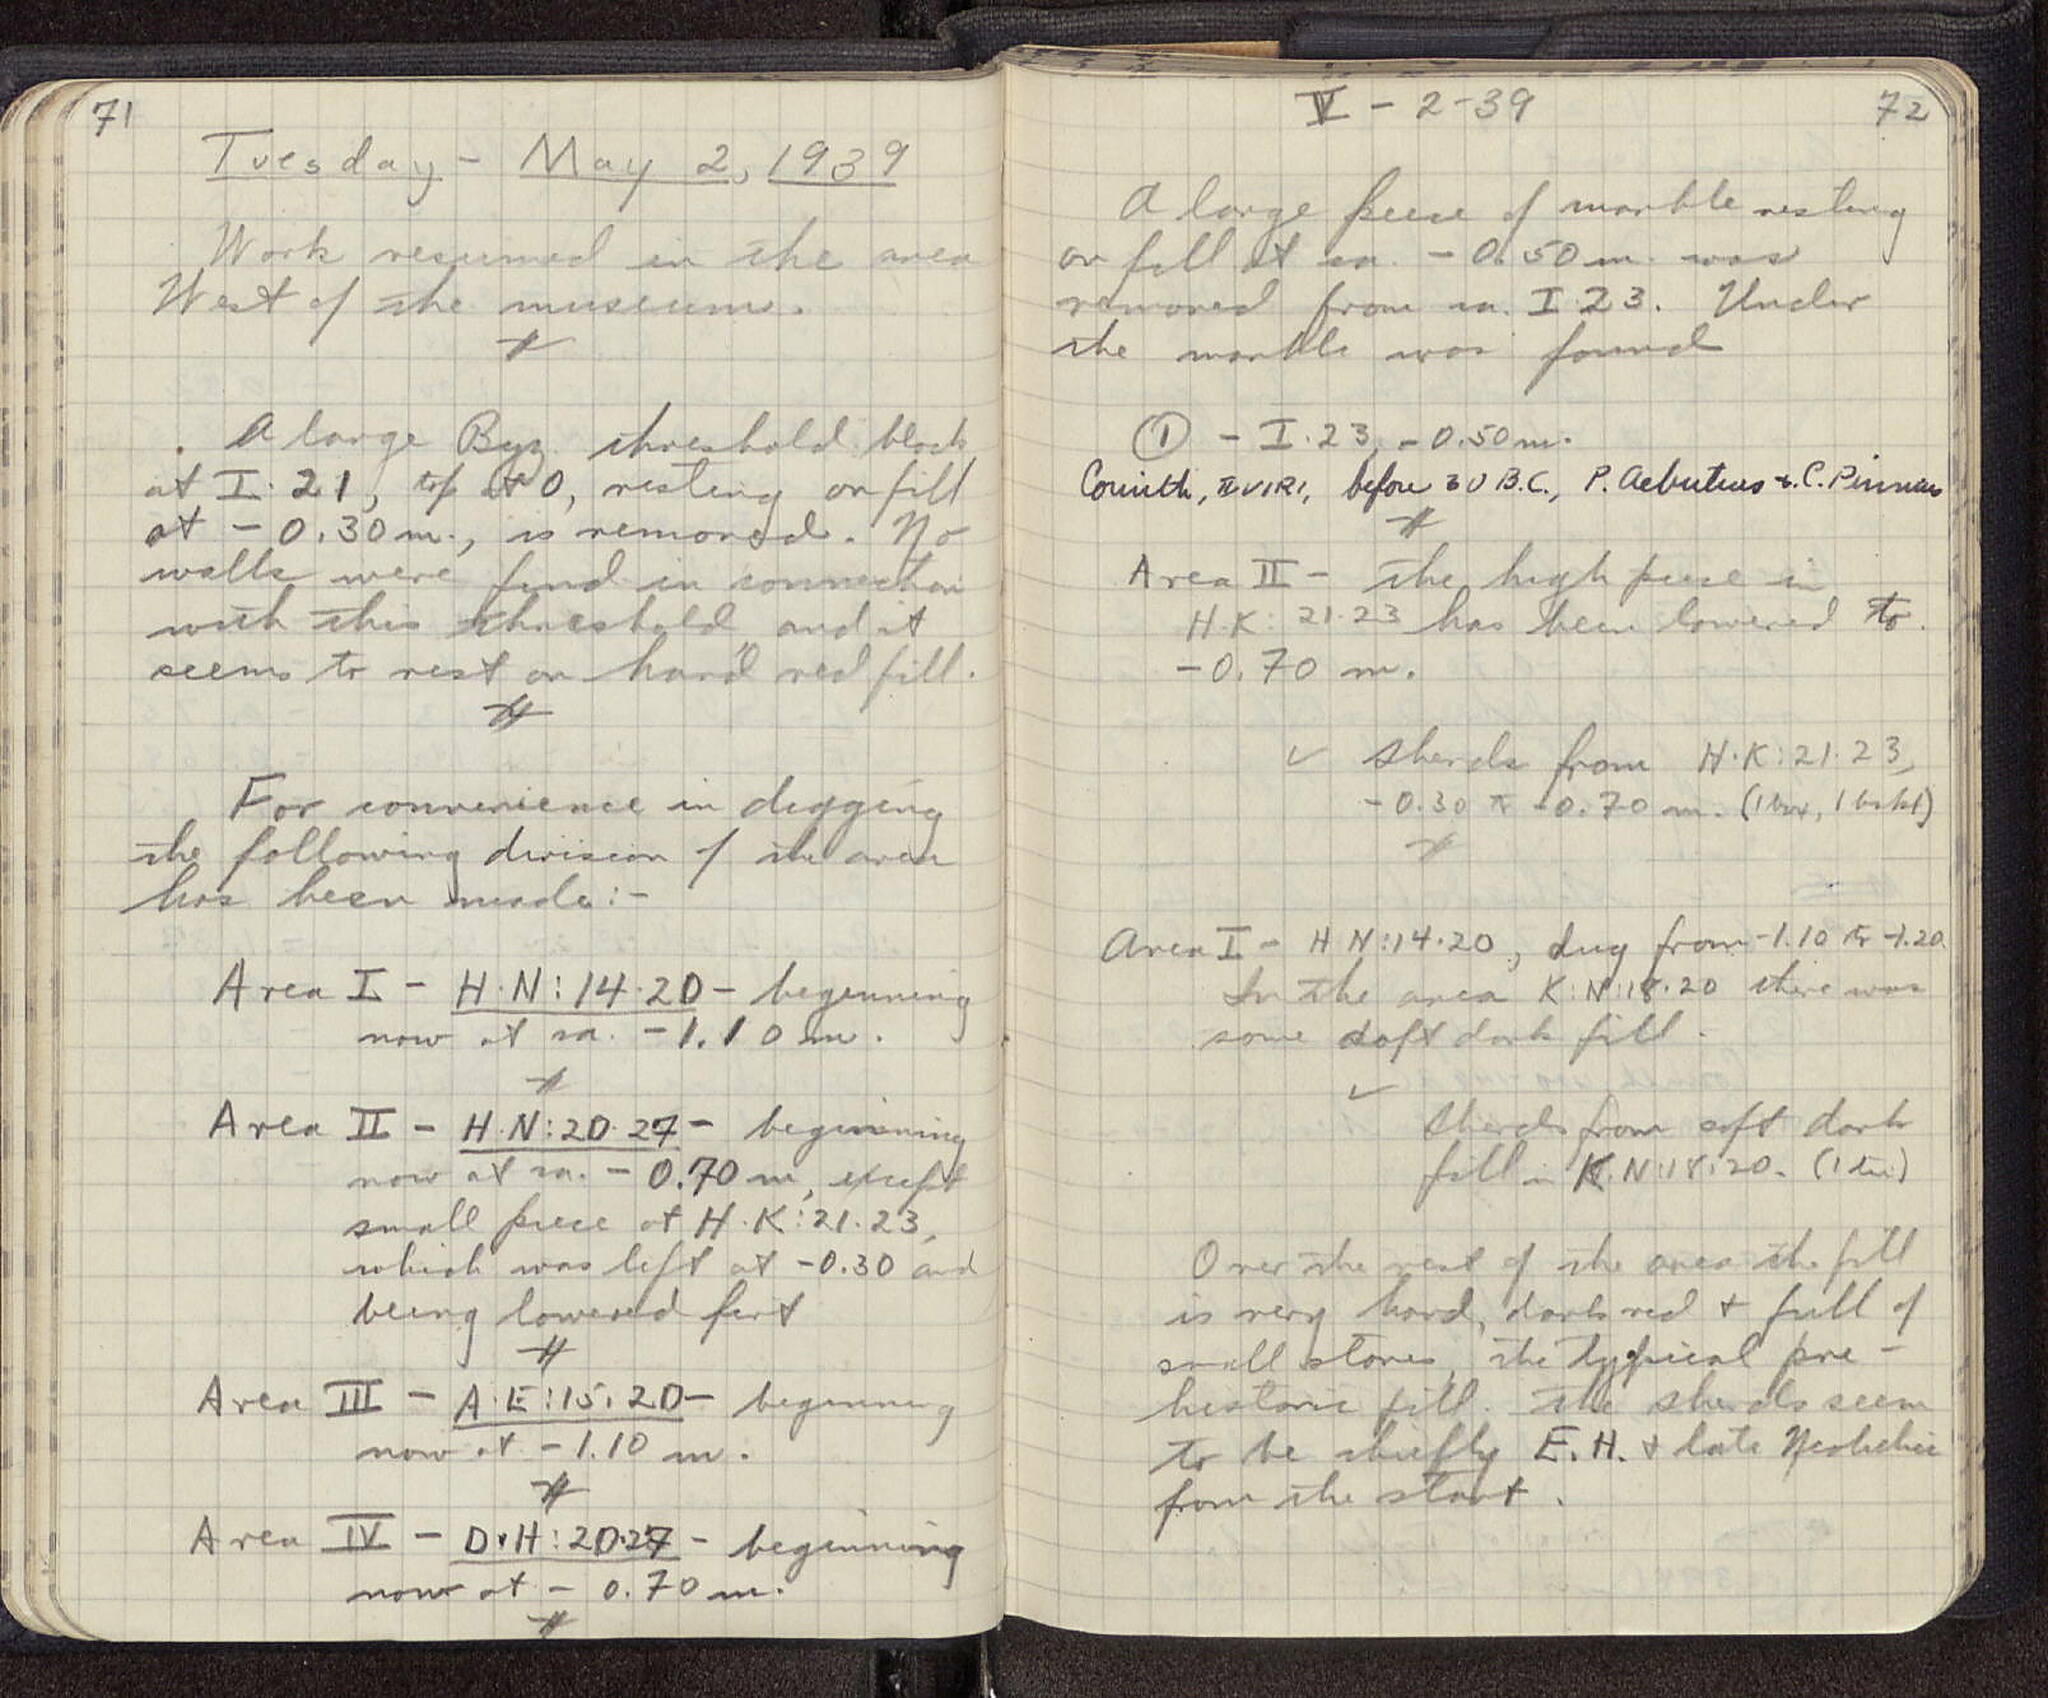 71
Tuesday - May 2, 1939
Work resumed in the area
West of the museum.
A large Byz. threshold block
at I.21, top at 0, resting on fill
at - 0.30 m., is removed. No
walls were found in connection
with this threshold and it
seems to rest on hard red fill.
For convenience in digging
the following division of the area
has been made:-
Area I - H.N:14.20 - beginning
now at ca. -1.10 m.
Area II - H.N:20.27 - beginning
now at ca. - 0.70 m, except
small piece at H.K:21.23,
which was left at -0.30 and
being lowered first
Area III - A.E:15.20 - beginning
now at - 1.10 m.
Area IV - D.H:20.27 - beginning
now at - 0.70 m.
V - 2-39
72
A large piece of marble resting
on fill at ca. - 0.50 m. was
removed from ca. I.23. Under
the marble was found
① - I.23, - 0.50 m.
Corinth, IIVIRI, before 30 B.C., P. Aebutius & C. Pinnius
Area II - The high piece in
H.K: 21.23 has been lowered to
-0.70 m.
✓ Sherds from H.K:21.23,
-0.30 to -0.70 m. (1 box, 1 bskt)
Area I - H N:14.20, dug from -1.10 to -1.20.
In the area K:N:18.20 there was
some soft dark fill.
✓
Sherds from soft dark
fill in K.N:18:20. (1 tin)
Over the rest of the area the fill
is very hard, dark red + full of
small stones, the typical pre-
historic fill. The sherds seem
to be chiefly E.H. + late Neolithic
from the start.